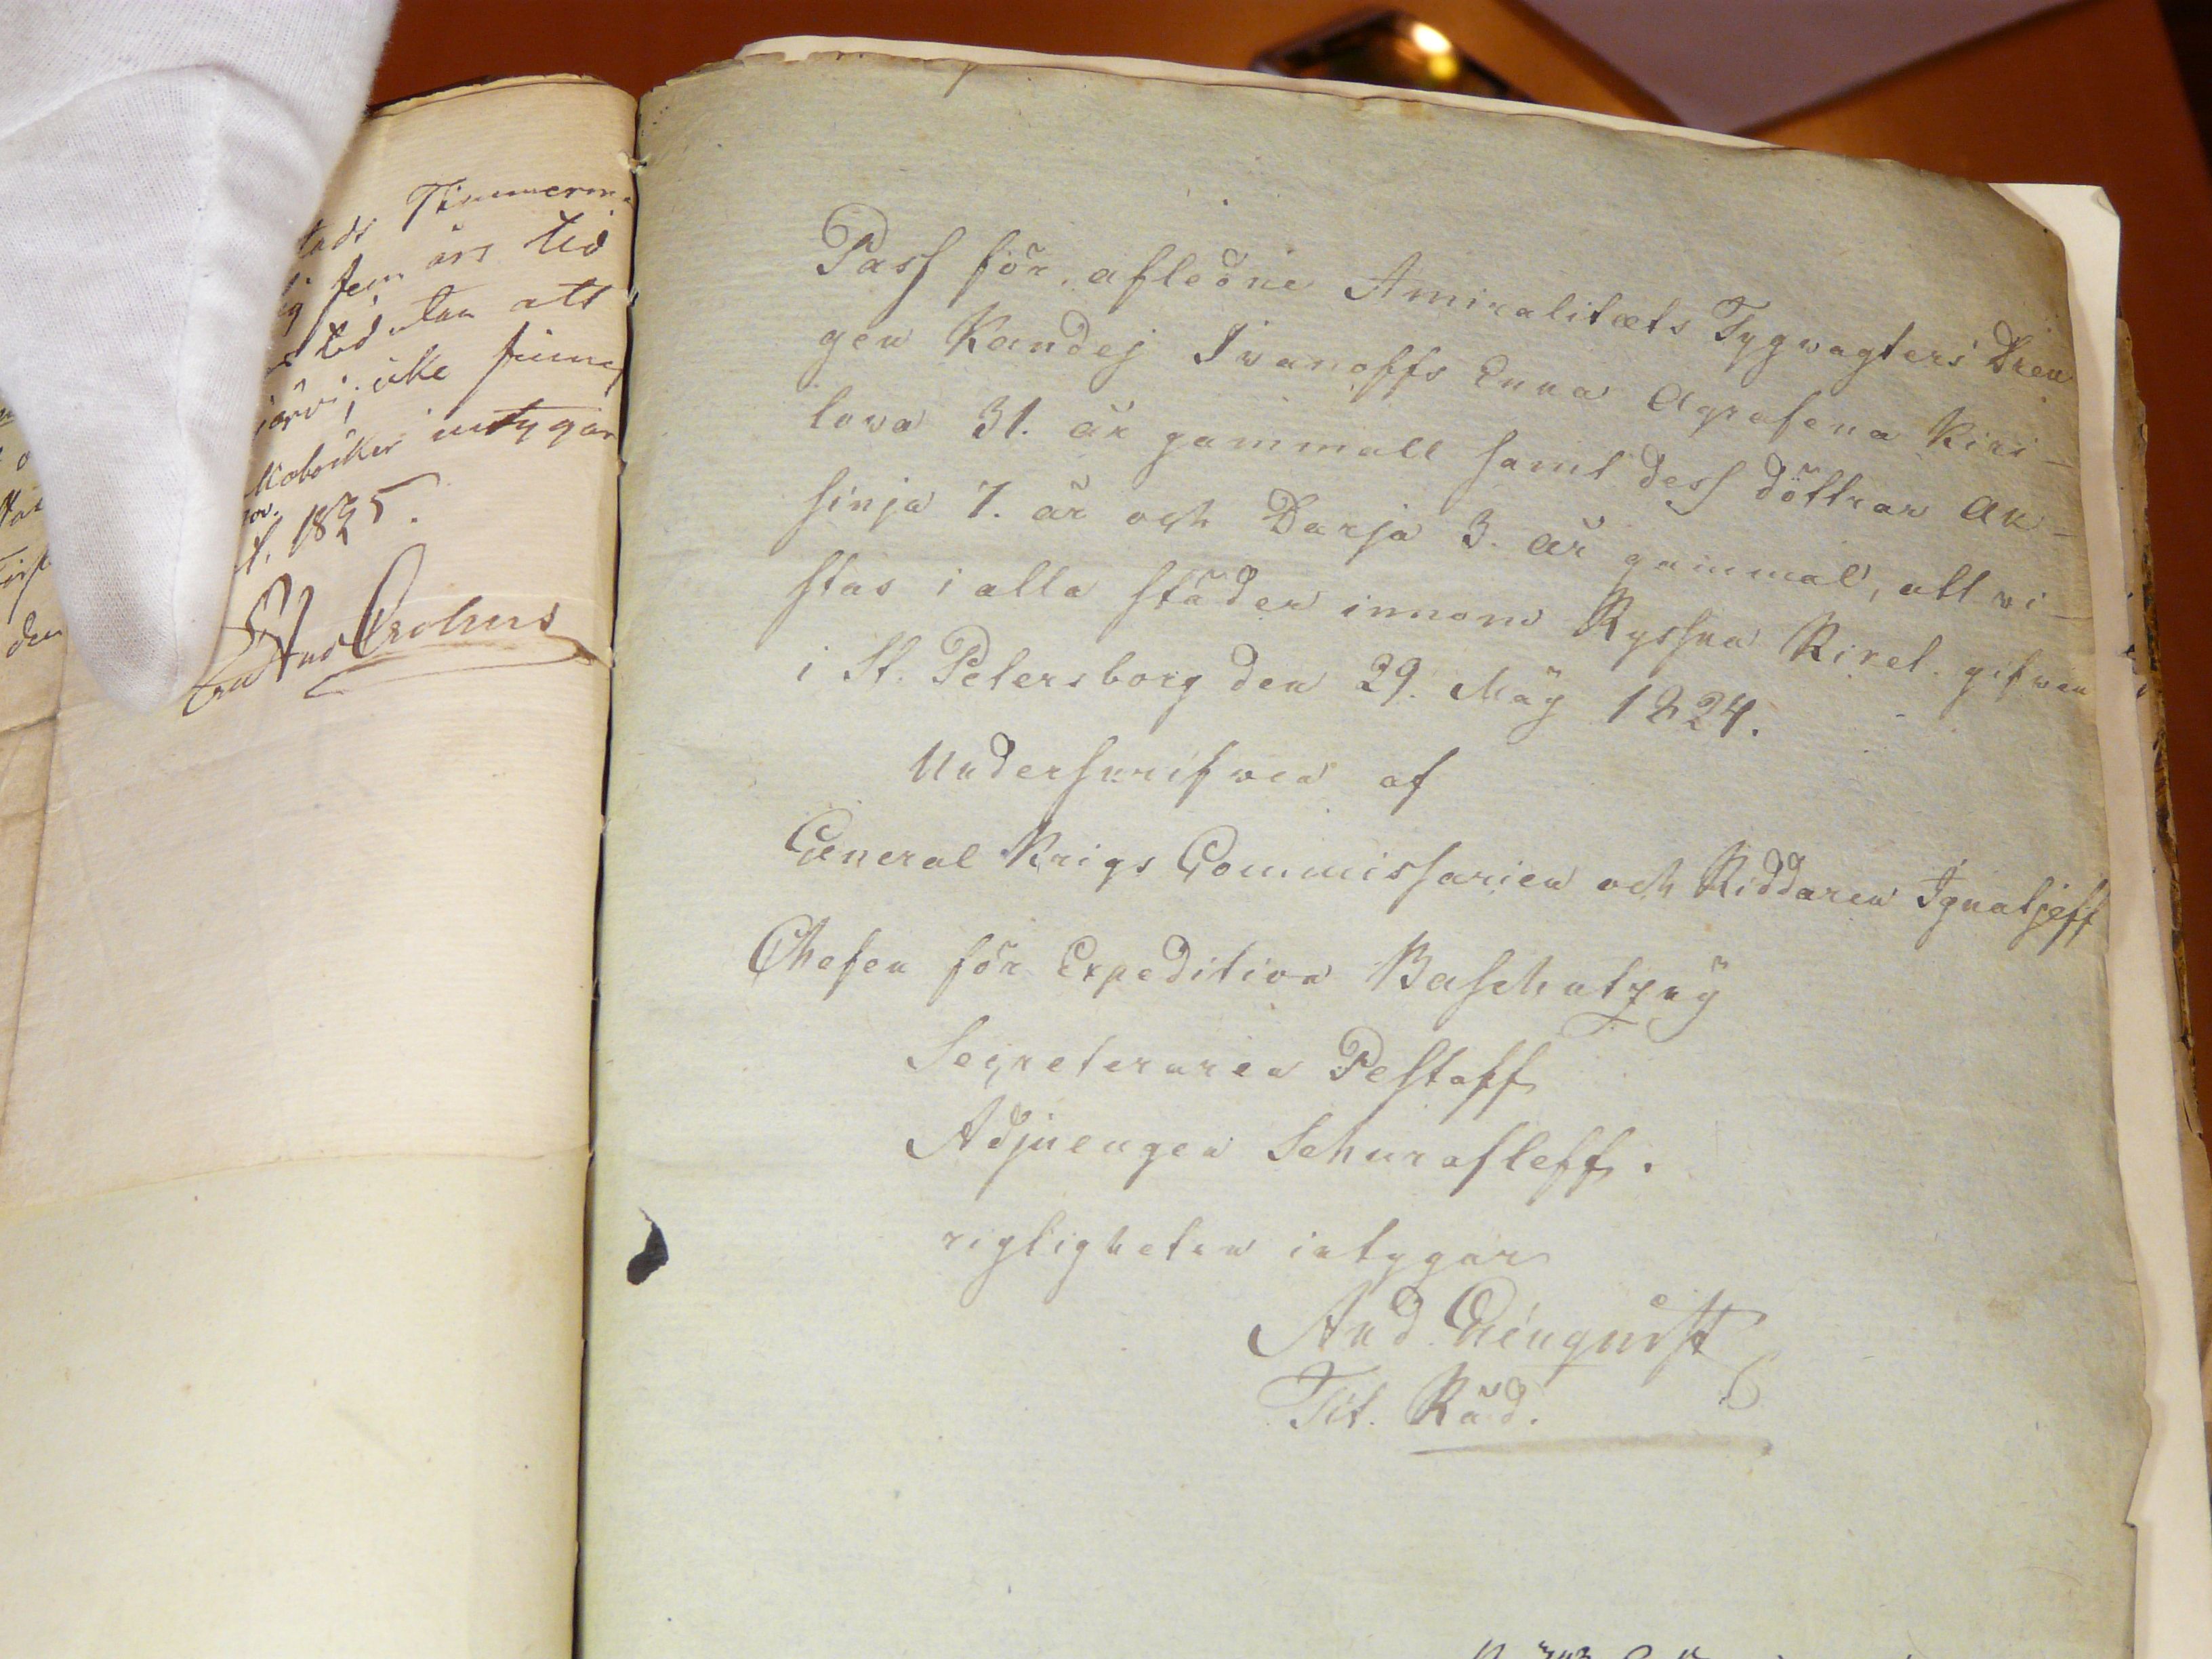 Timmerm
fem års tid
utan att
icke finnes
intygar
1825.
Pass för afledne Amiralitæts Tygvagters Dren
gen Kandej Ivanoffs Enka Agrafena Kiri-
lova 31. år gammall samt dess döttrar Ak-
sinja 7. år och Darja 3. år gammal, att vi-
stas i alla städer innom Ryska Riket. gifven
i St. Petersborg den 29. Maÿ 1824.
Underskrifven af
General Krigs Commissarien och Riddaren Ignatjeff
Chefen för Expedition Baschutzkÿ
Secreteraren Pestoff
Adjuengen Schurafleff.
rigtigheten intygar
And.
Tit. Råd.